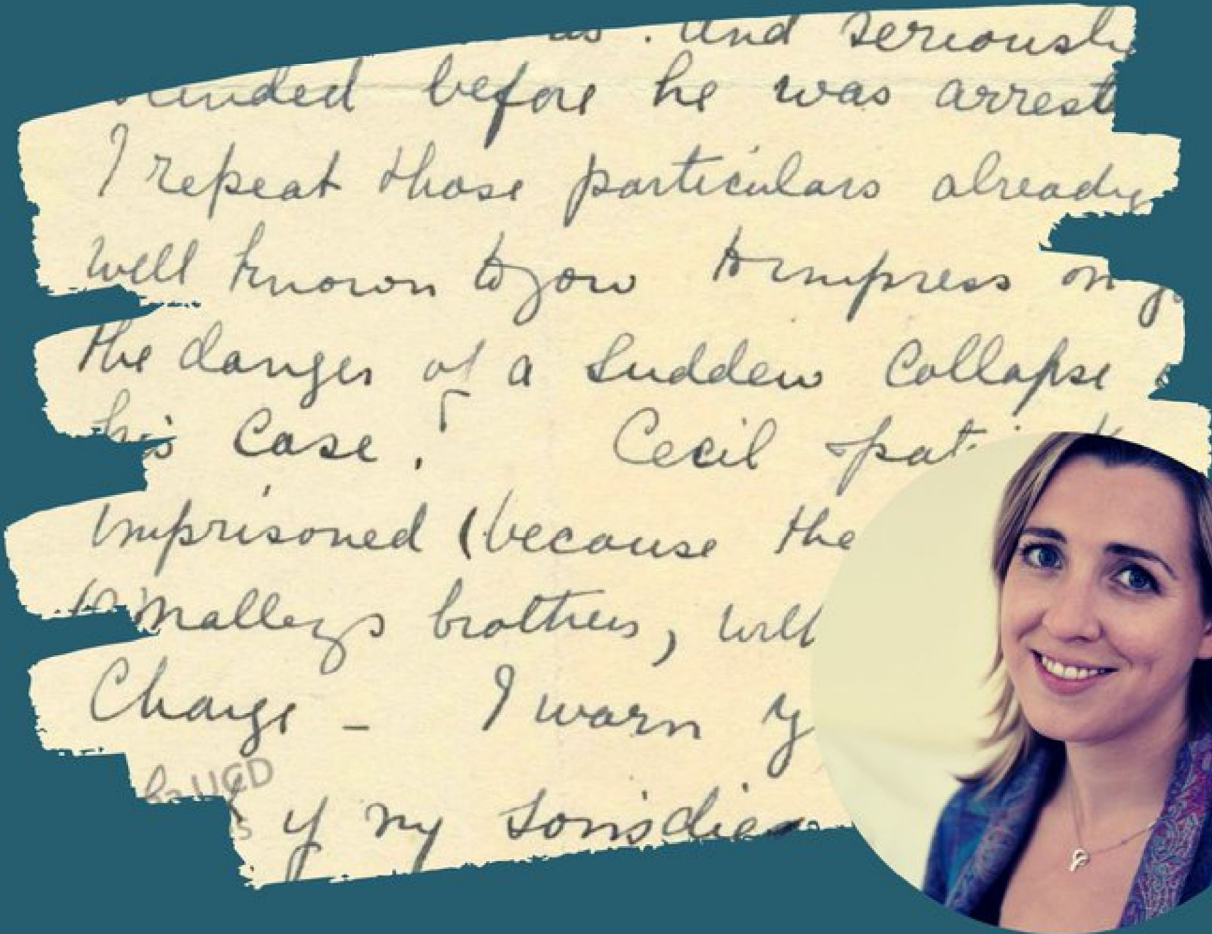 and seriously
before he was arrest
I repeat those particulars already
well known to you to impress on
the danger of a sudden collapse
his case! Cecil
imprisoned (because the
O'Malleys brothers, will
Charge - I warn y
UCD
if my sons die